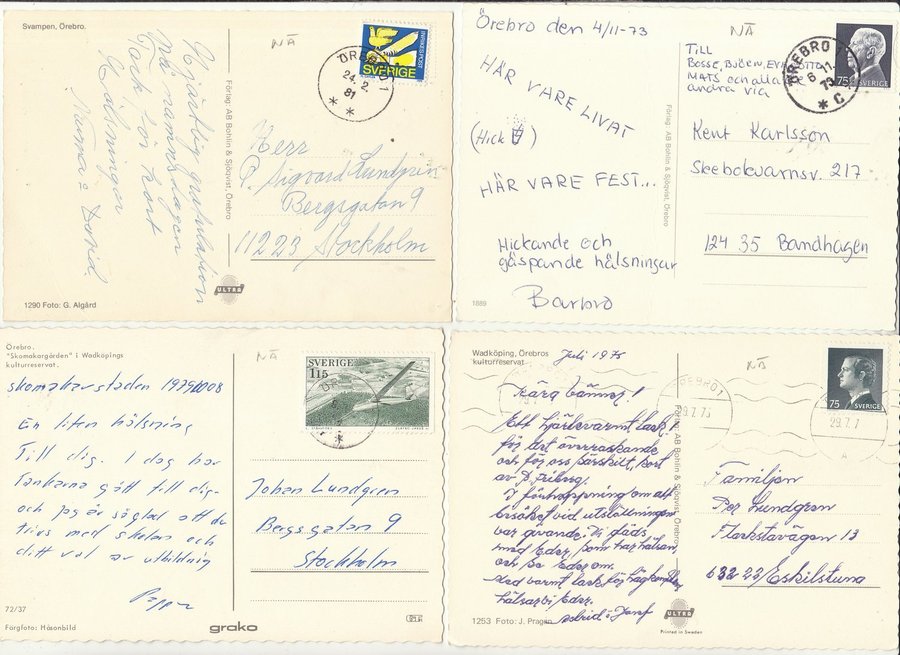 Svampen, Örebro.
NÄ
SVERIGE
ÖREBRO 1
24. 2.
81
Hjärtlig gratulation
på namnsdagen
Tack för kort
Hälsningar
David
Herr
P. Sigvard Lundgren
Bergsgatan 9
11223 Stockholm
Förlag: AB Bohlin & Sjöqvist, Örebro
1290 Foto: G. Algård
ULTRA
Örebro den 4/11-73
NÄ
HÄR VARE LIVAT
(Hick )
HÄR VARE FEST...
Hickande och
gäspande hälsningar
Barbro
1889
Förlag: AB Bohlin & Sjöqvist, Örebro
TILL
Bosse, Björn, Eva,
MATS och alla de
andra via
ÖREBRO
6 11
73
C
75 SVERIGE
Kent Karlsson
Skebokvarnsv. 217
124 35 Bandhagen
Örebro.
"Skomakargården" i Wadköpings
kulturreservat.
NÄ
SVERIGE
115
skomakarstaden 1979
En liten hälsning
Till dig. I dag har
Tankarna gått till dig
och jag är så glad att du
trivs med skolan och
ditt val av utbildning
Pappa
Johan Lundgren
Bergsgatan 9
Stockholm
72/37
Färgfoto: Håsonbild
grako
Wadköping, Örebros
kulturreservat
Juli 1975
NÄ
ÖREBRO 1
29.7.75
29.7.7
75 SVERIGE
Kära vänner!
Ett hjärtevarmt tack
för det överraskande
och för oss särskilt, kort
av
I förhoppning om att
besöket vid utställningen
var givande. Vi gläds
med Eder, som har hälsan,
och be Eder om.
Med varmt tack för ihågkomsten
hälsar vi Eder.
Astrid o Josef
Förlag: AB Bohlin & Sjöqvist, Örebro
Familjen
Per Lundgren
13
632 23 / Eskilstuna
1253 Foto: J. Pragin
ULTRA
Printed in Sweden